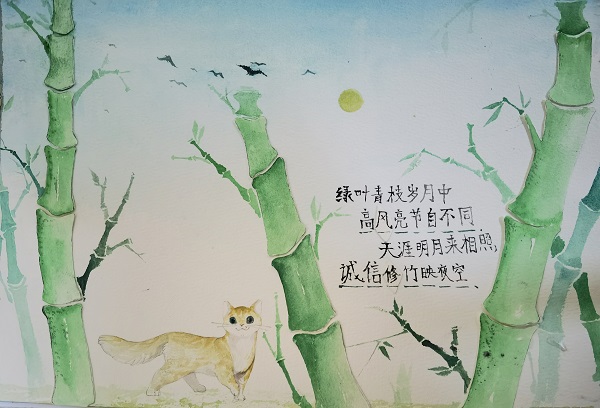 绿叶青枝岁月中
高风亮节自不同
天涯明月来相照
诚信修竹映夜空